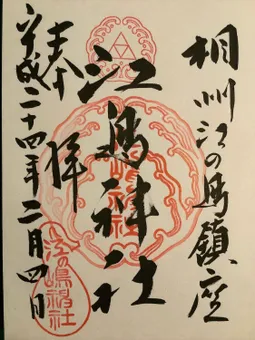 相州江の島鎮座
江島神社
奉拝
平成二十四年二月四日
江島神社
江の嶋神社